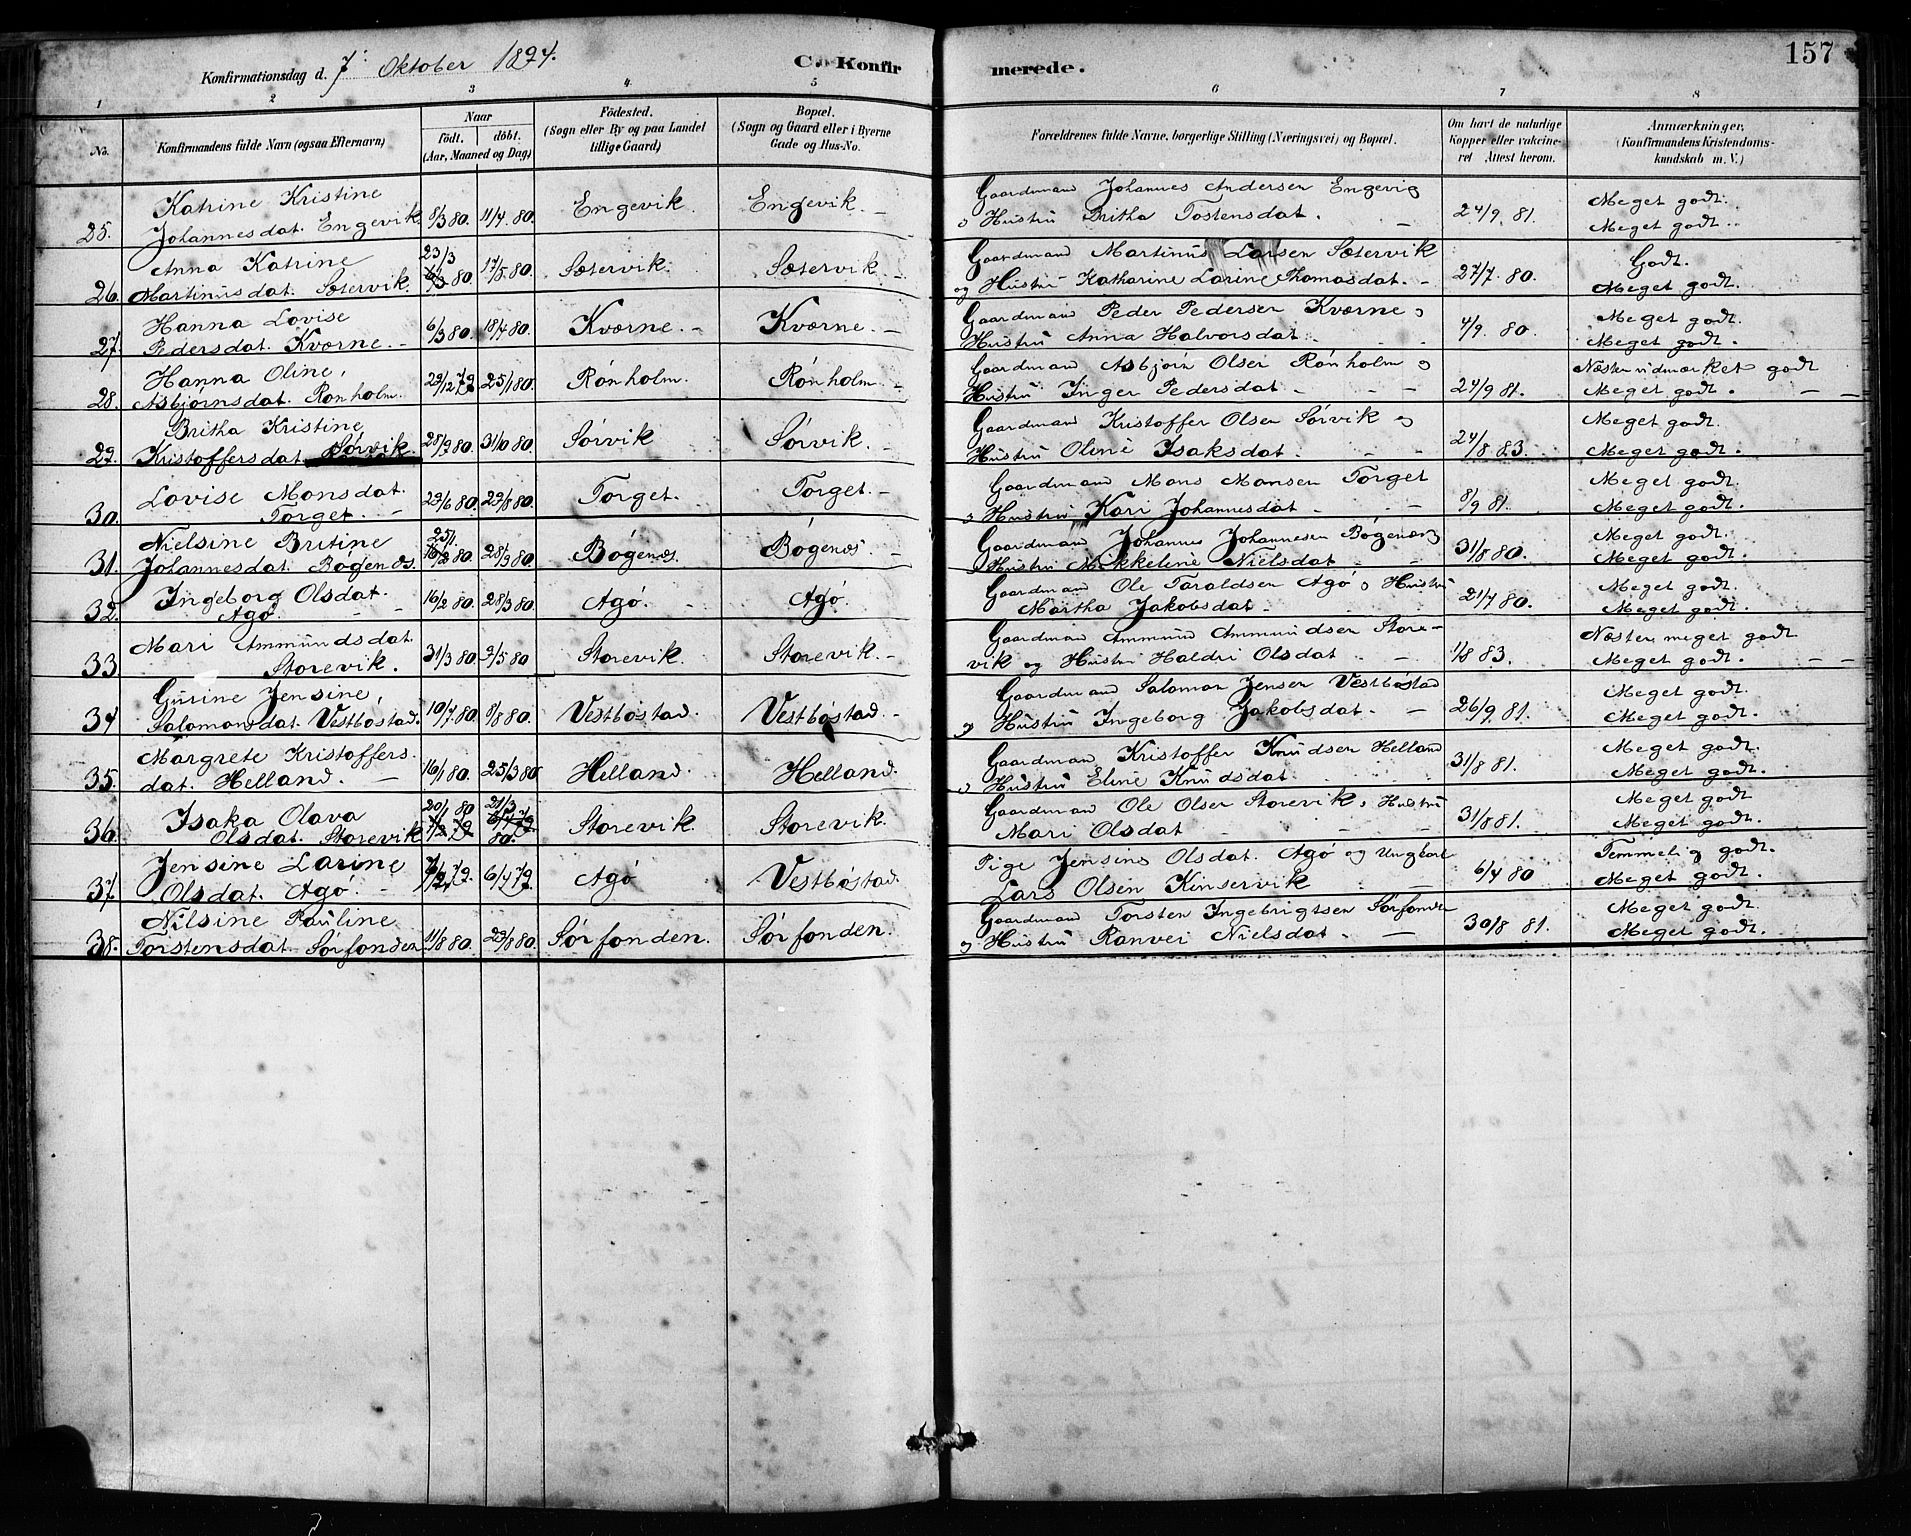 157
Konfirmationsdag d. 7 Oktober 1894.
C. Konfir merede.
1 2 3 4 5 6 7 8
No.
Konfirmandens fulde Navn (ogsaa Efternavn)
Naar
födt. döbt.
(Aar, Maaned og Dag)
Födested.
(Sogn eller By og paa Landet
tillige Gaard)
Bopæl.
(Sogn og Gaard eller i Byerne
Gade og Hus-No.
Forældrenes fulde Navne, borgerlige Stilling (Næringsvei) og Bopæl.
Om havt de naturlige
Kopper eller vakcine-
ret Attest herom.
Anmærkninger.
(Konfirmandens Kristendoms-
kundskab m. V.)
Katrine Kristine
25. Johannesdat. Engevik 9/3 80. 11/4. 80. Engevik. Engevik.
Gaardmand Johannes Andersen Engevig
o Hustru Britha Tostensdat. 24/9. 81.
Meget godt.
Meget godt.
Anna Katrine 23/3
26. Martinusdat. Sætervik. 80. 17/5. 80. Sætervik. Sætervik.
Gaardmand Martinus Larsen Sætervik
og Hustru Katharine Larine Thomasdat. 27/7. 80.
Godt.
Meget godt.
Hanna Lovise
27. Pedersdat. Kværne. 6/3 80. 18/4 80. Kværne. Kværne.
Gaardmand Peder Pedersen Kværne o
Hustru Anna Halvorsdat. 4/9. 80.
Meget godt.
Meget godt.
Hanna Oline,
28. Asbjørnsdat. Rønholm. 29/12 79 25/1 80. Rønholm. Rønholm
Gaardmand Asbjørn Olsen Rønholm o
Hustru Inger Pedersdat. 24/9 81.
Næsten udmærket godt
Meget godt.
Britha Kristine
29. Kristoffersdat. Sørvik. 28/9 80. 31/10 80. Sørvik Sørvik.
Gaardmand Kristoffer Olsen Sørvik o
Hustru Oline Isaksdat. 24/8 83.
Meget godt.
Meget godt.
Lovise Monsdat.
30. Torget. 29/6 80. 29/8 80. Torget. Torget.
Gaardmand Mons Monsen Torget
o Hustru Kari Johannesdat 8/9 81.
Meget godt.
Meget godt.
Nielsine Britine 25/1.
31. Johannesdat. Bøgenæs. 80. 28/3 80. Bøgenæs. Bøgenæs.
Gaardmand Johannes Johannesen Bøgenæs o
Hustru Mikkeline Nielsdat 31/8 80.
Meget godt.
Meget godt.
Ingeborg Olsdat.
32. Agø. 16/2 80. 28/3 80. Agø. Agø.
Gaardmand Ole Taraldsen Agø o Hustru
Martha Jakobsdat 21/7 80.
Meget godt.
Meget godt.
Mari Ammundsdat
33 Storevik. 31/3 80. 9/5 80 Storevik. Storevik.
Gaardmand Ammund Ammundsen Store-
vik og Hustru Haldri Olsdat 1/8 83.
Næsten meget godt
Meget godt.
Gurine Jensine,
34. Salomonsdat. Vestbøstad. 10/7. 80. 8/8 80. Vestbøstad. Vestbøstad.
Gaardmand Salomon Jensen Vestbøstad
o Hustru Ingeborg Jakobsdat. 26/9 81.
Meget godt.
Meget godt.
Margrete Kristoffers
35. dat. Helland. 16/1 80. 25/3 80. Helland. Helland.
Gaardmand Kristoffer Knudsen Helland
o Hustru Eline Knudsdat. 31/8 81.
Meget godt.
Meget godt.
Isaka Olava 20/1 80 21/3
36. Olsdat. Storevik 80. Storevik. Storevik.
Gaardmand Ole Olsen Storevik o Hustru
Mari Olsdat 31/8 81.
Meget godt
Meget godt.
Jensine Larine
37. Olsdat. Agø. 79. 6/4 79. Agø Vestbøstad.
Pige Jensine Olsdat. Agø og Ungkarl
Lars Olsen Kinservik 6/4 80
Temmelig godt.
Meget godt.
Nilsine Pauline
38. Torstensdat. Sørfonden 11/8 80. 29/8 80. Sørfonden. Sørfonden.
Gaardmand Torsten Ingebrigtsen Sørfonden
o Hustru Ranvei Nielsdat. 30/8 81.
Meget godt.
Meget godt.